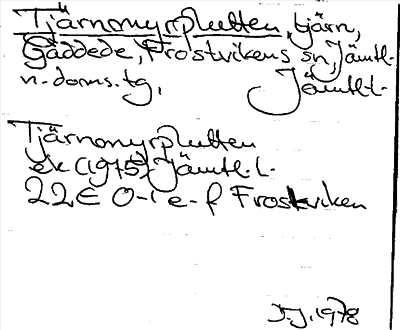 Tjärnomyrplutten, tjärn,
Gäddede, Frostvikens sn, Jämtl.
n. doms. tg, Jämtl.l.
Tjärnomyrplutten
ek (1975) Jämtl.l.
22E 0-1 e-f Frostviken
J.J. 1978